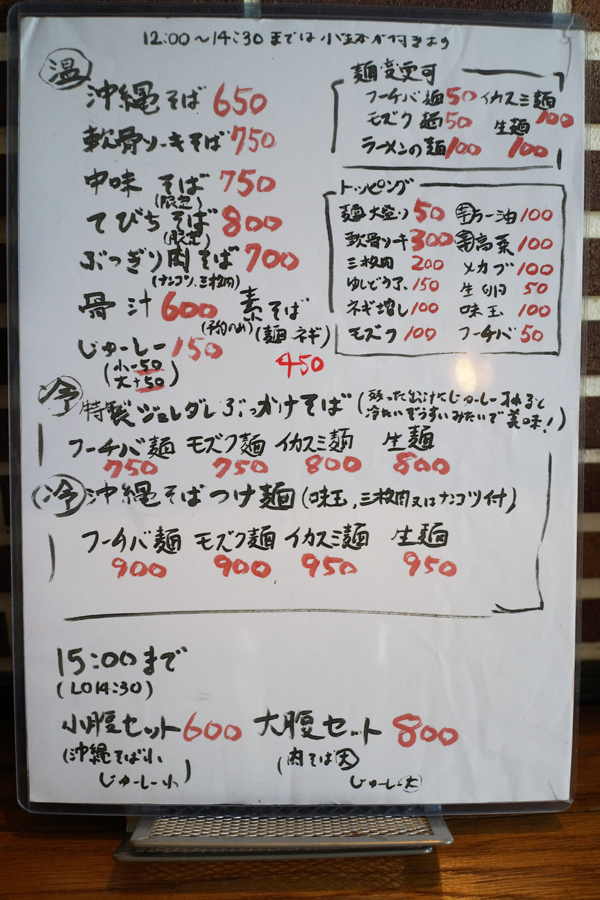 12:00〜14:30までは小鉢が付きます
温
沖縄そば 650
軟骨ソーキそば 750
中味そば 750
(限定)
てびちそば 800
(限定)
ぶつぎり肉そば 700
(ナンコツ、三枚肉)
骨汁 600
(予約のみ)
素そば
(麺 ネギ)
450
じゅーしー 150
(小-50
大+50)
麺変更可
フーチバ麺 50 イカスミ麺 100
モズク麺 50 生麺 100
ラーメンの麺 100
トッピング
麺大盛り 50 ラー油 100
軟骨ソーキ 300 高菜 100
三枚肉 200 メカブ 100
ゆしどうふ 150 生卵 50
ネギ増し 100 味玉 100
モズク 100 フーチバ 50
冷 特製ジュレダレぶっかけそば
(残った出汁にじゅーしー
冷たいぞうすいみたいで美味!)
フーチバ麺 モズク麺 イカスミ麺 生麺
750 750 800 800
冷 沖縄そばつけ麺 (味玉、三枚肉又はナンコツ付)
フーチバ麺 モズク麺 イカスミ麺 生麺
900 900 950 950
15:00まで
(LO14:30)
小腹セット 600 大腹セット 800
(沖縄そば小
じゅーしー小)
(肉そば大
じゅーしー大)